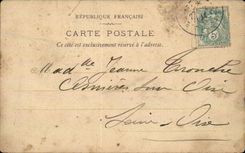 RÉPUBLIQUE FRANÇAISE
CARTE POSTALE
Ce côté est exclusivement réservé à l'adresse.
Jeanne
Asnières sur Oise
Seine & Oise